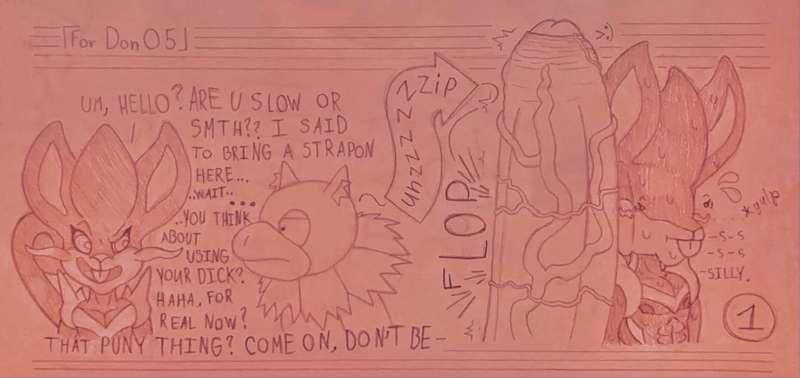 「For Don05」
UM, HELLO? ARE U SLOW OR
SMTH?? I SAID
TO BRING A STRAPON
HERE...
..WAIT..
..YOU THINK
ABOUT
USING
YOUR DICK?
HAHA, FOR
REAL NOW?
THAT PUNY THING? COME ON, DON'T BE-
...
unzzzzzzip
FLOP
>:)
....
*gulp
-S-S
-S-S
-SILLY.
1